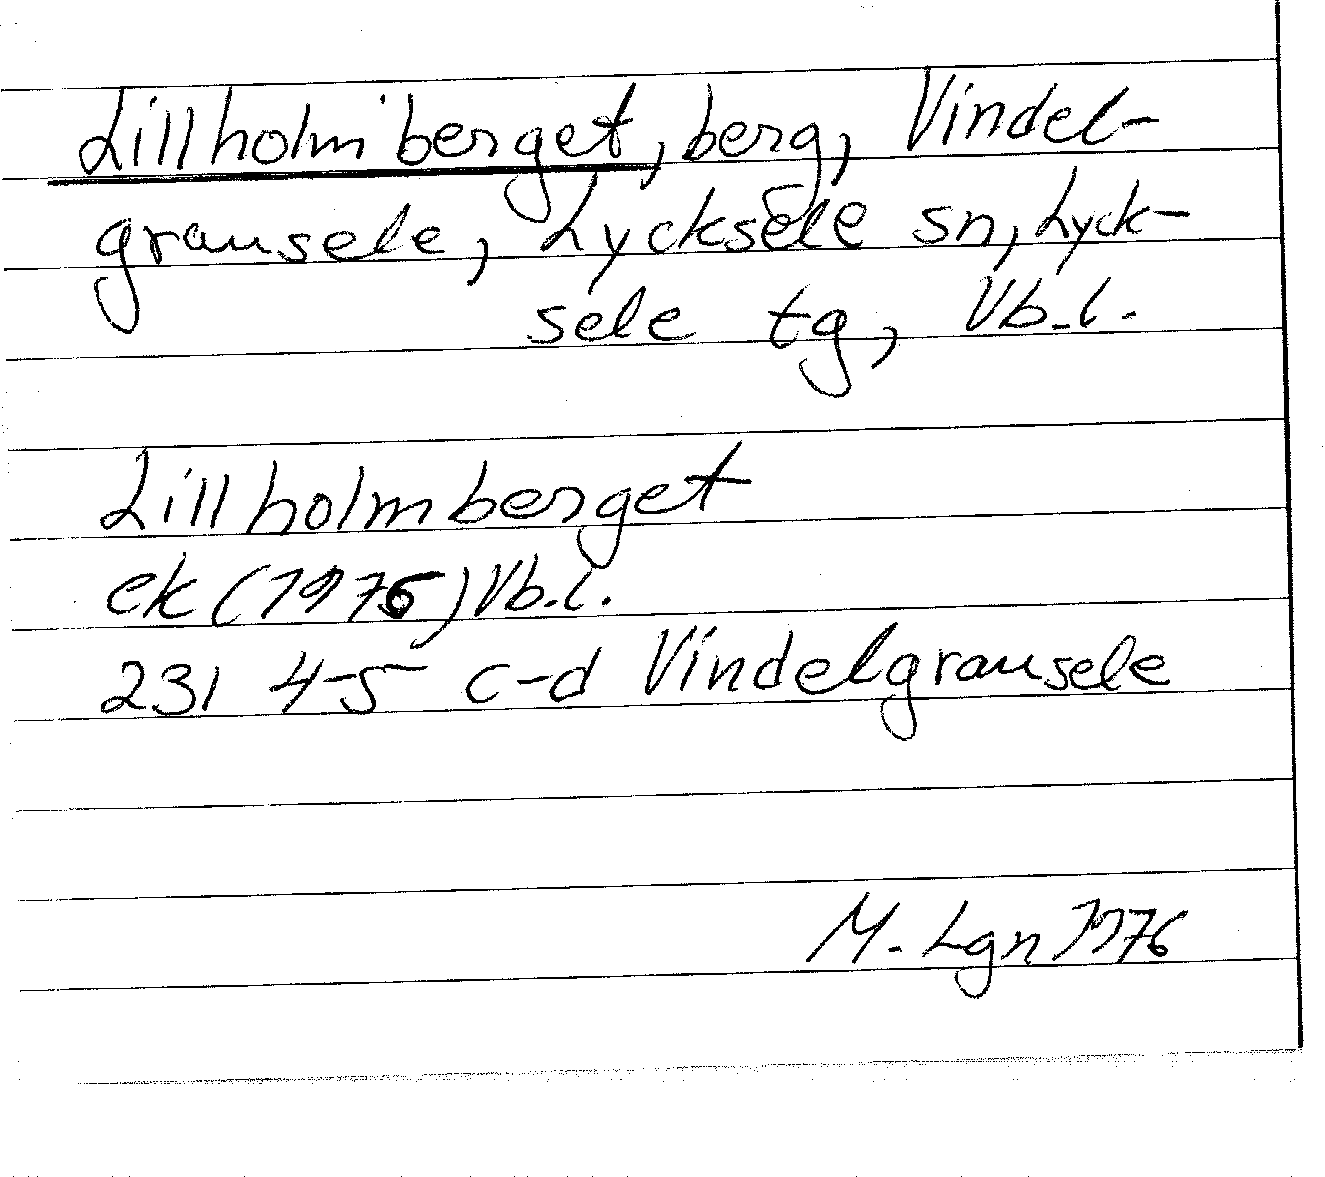 Lillholmberget, berg, Vindel-
gransele, Lycksele sn, Lyck-
sele tg, Vb.l.
Lillholmberget
ek (1976) Vb.l.
231 4-5 c-d Vindelgransele
M. Lgn 1976